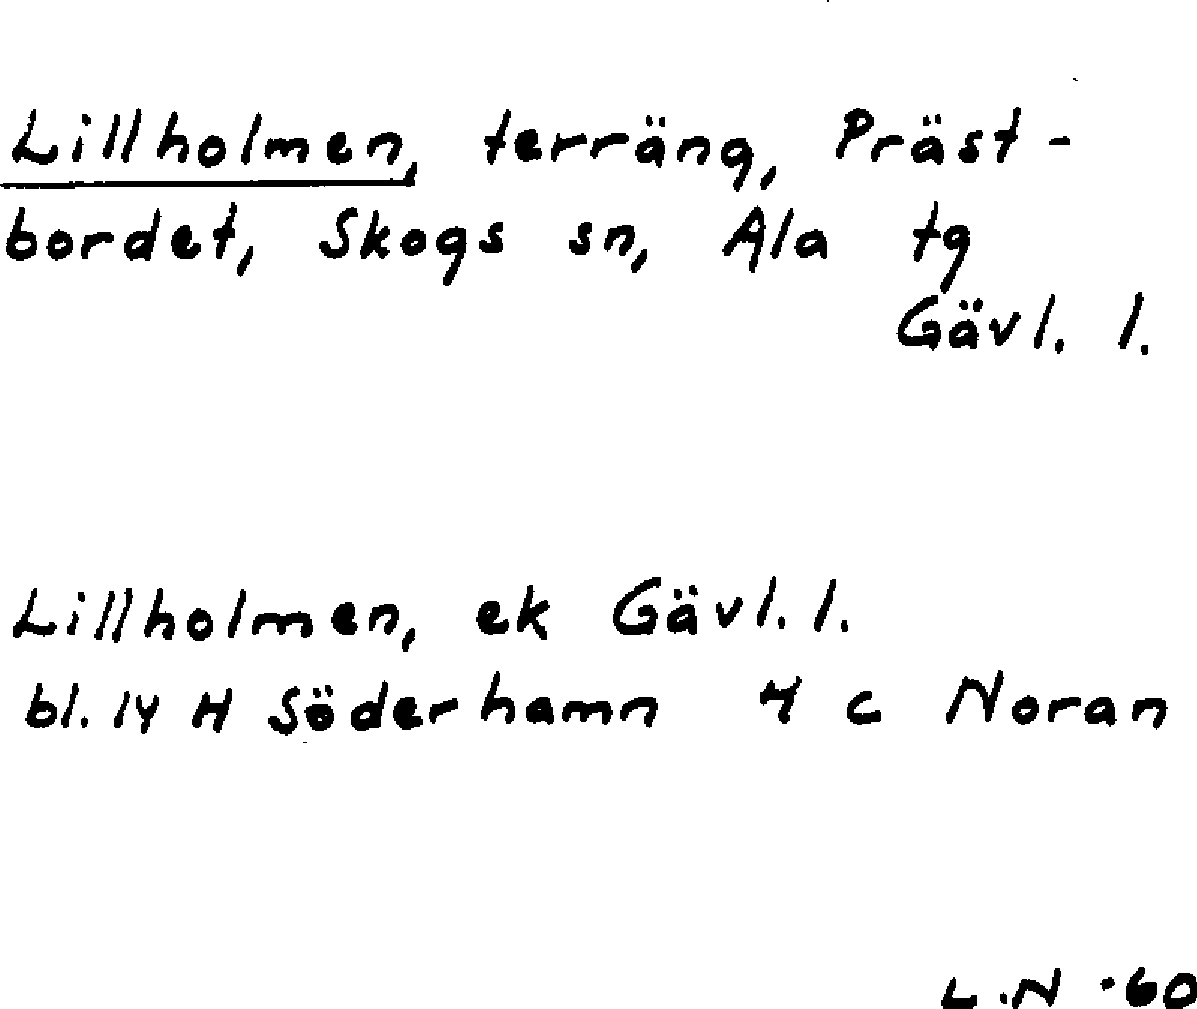 Lillholmen, terräng, Präst-
bordet, Skogs sn, Ala tg
Gävl. l.
Lillholmen, ek Gävl. l.
bl. 14 H Söderhamn 4 c Noran
L.N -60